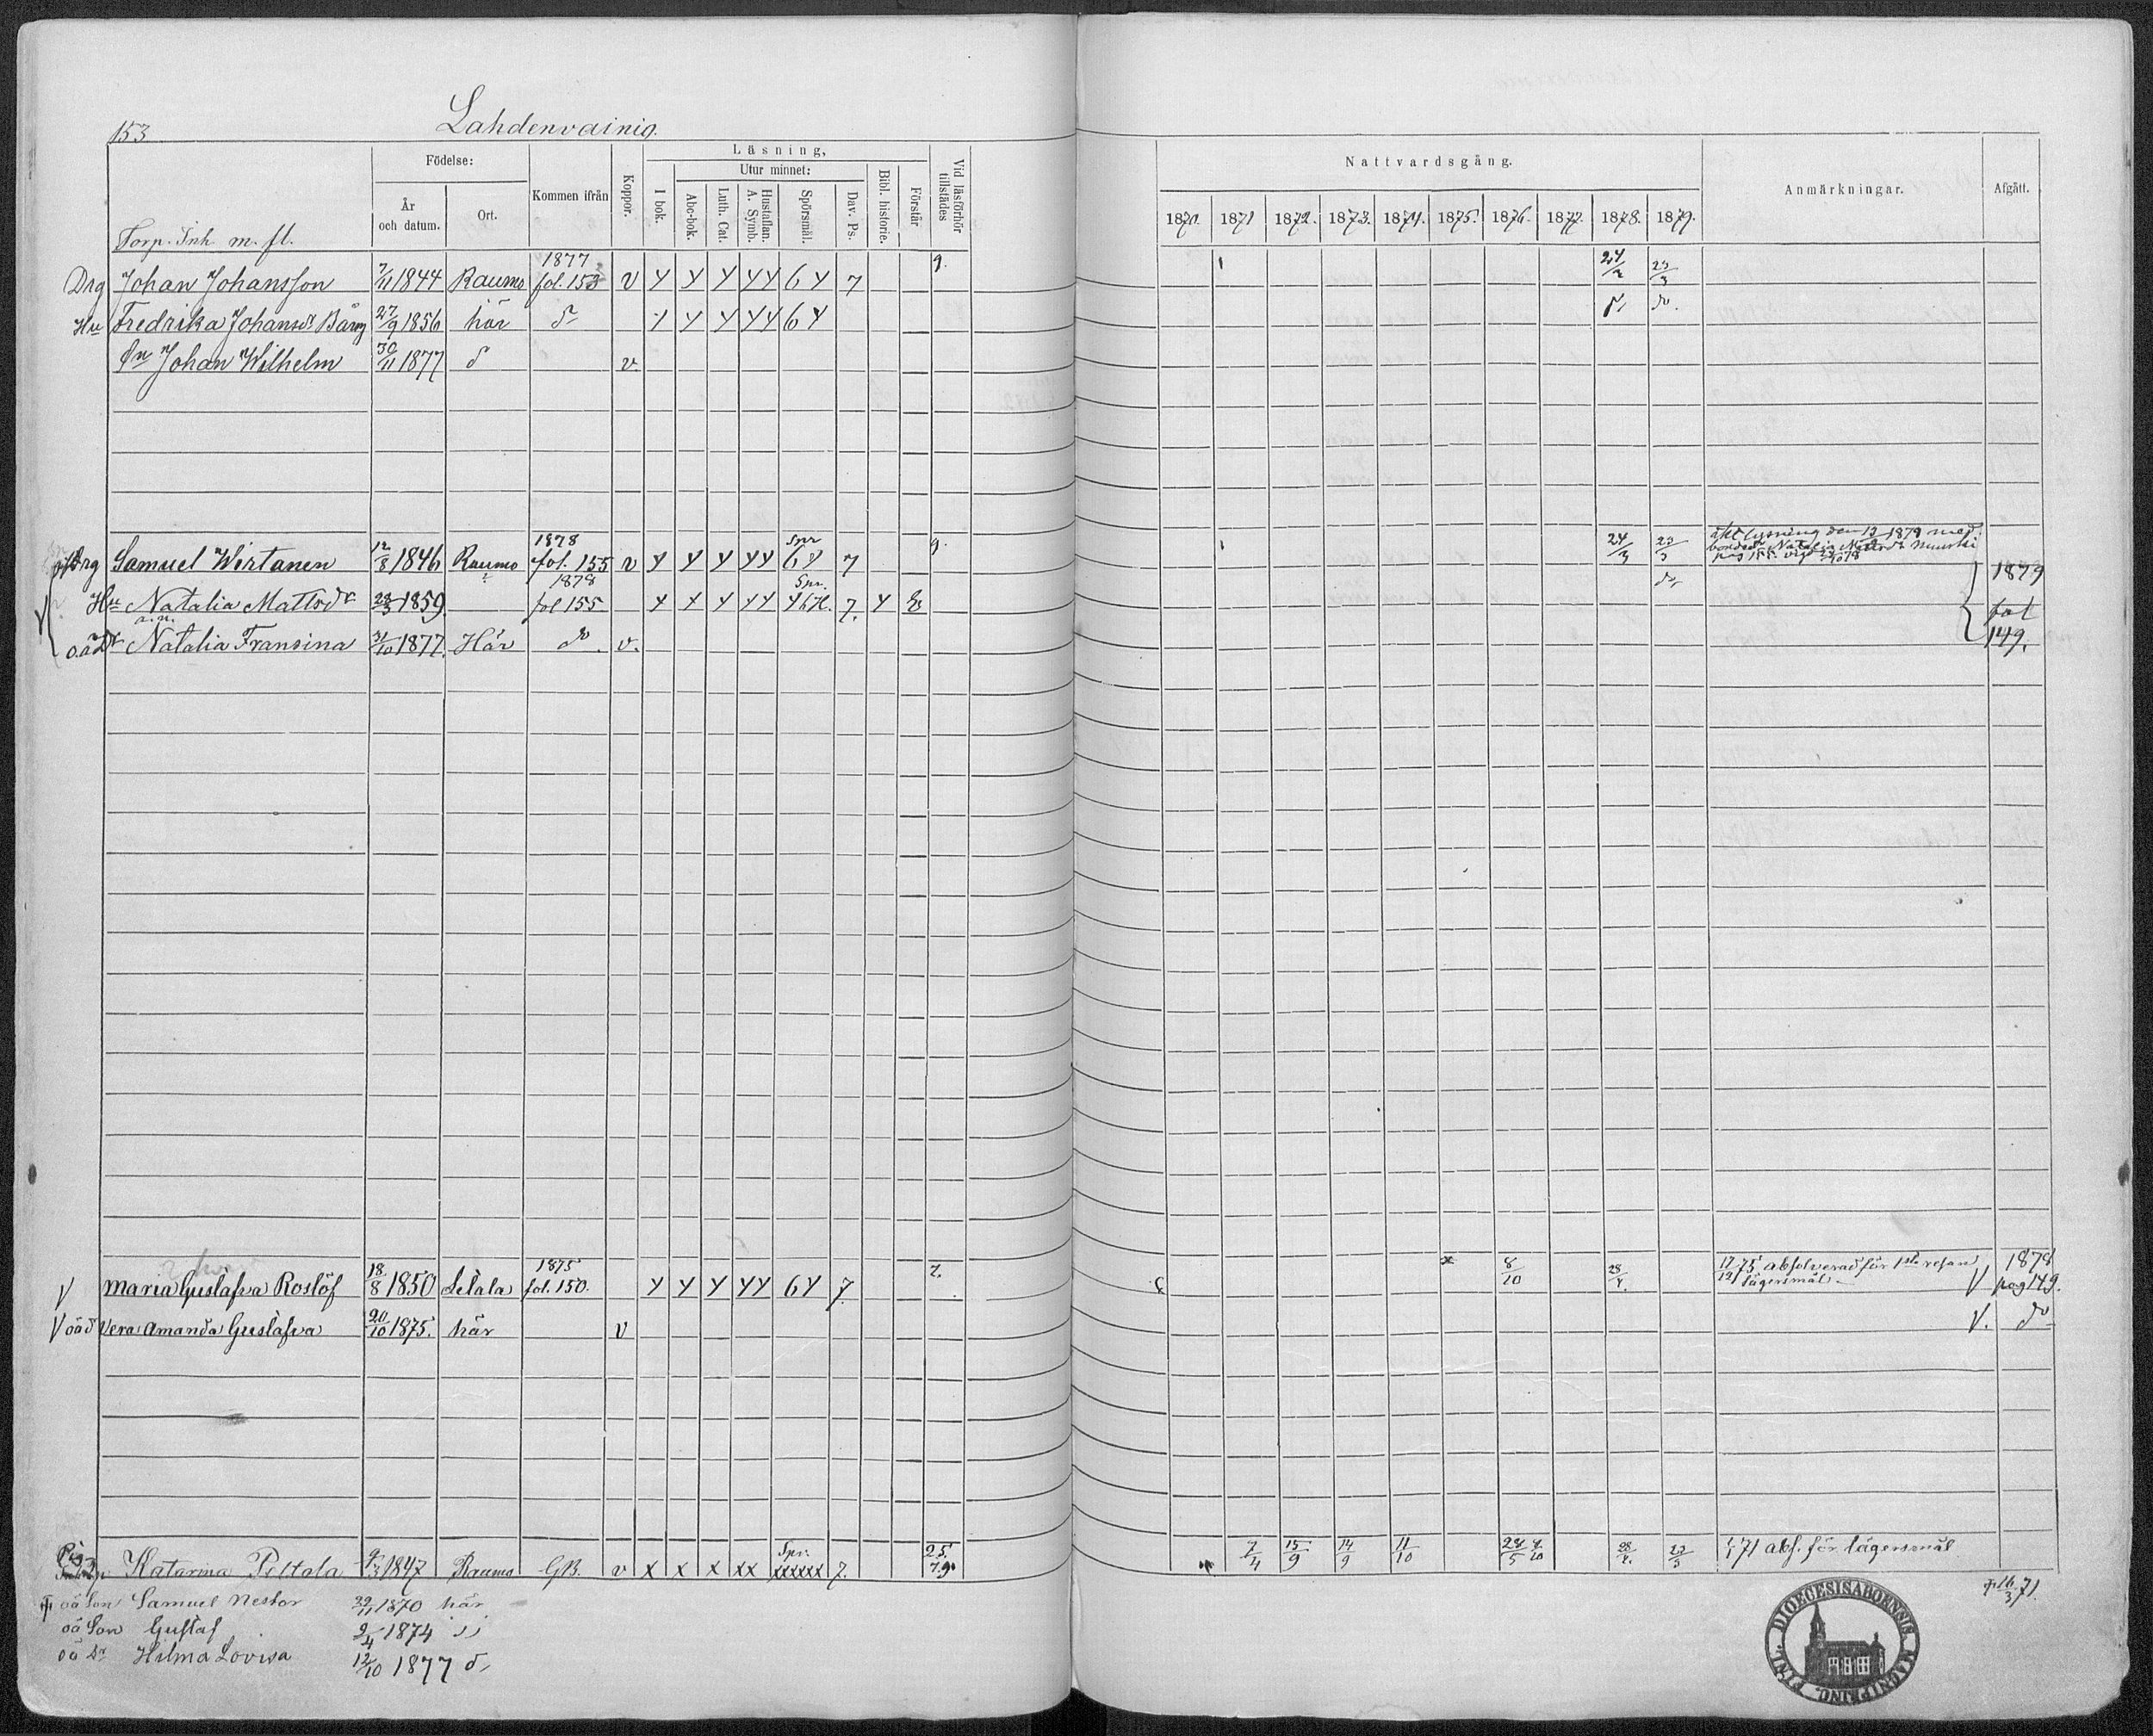 153
Lahdenvainio.
Födelse:
Läsning,
Utur minnet:
År och datum.
Ort.
Kommen ifrån
Koppor.
I bok.
Abc-bok.
Luth. Cat.
Hustaflan. A. Symb.
Spörsmål.
Dav. Ps.
Bibl. historie.
Förstår
Vid läsförhör tillstädes
Nattvardsgång.
1870. 1871 1872. 1873. 1874. 1875. 1876. 1877. 1878. 1879.
Anmärkningar.
Afgått.
Torp. Inh. m. fl.
Drg Johan Johansson 7/11 1844 Raumo 1877 fol. 153 v Y Y Y YY 6Y 7 9. 24/2 23/3
Hu Fredrika Johansdr 27/9 1856 här do Y Y Y YY 6Y do do.
Sn Johan Wilhelm 30/11 1877 do v
Drg Samuel Wirtanen 12/8 1846 Raumo 1878 fol. 155 v Y Y Y YY Spr 6Y 7 9. 24/3 23/3 lysning den 1878 med Natalia pag 155
Hu Natalia Mattsdr 28/3 1859. 1878 fol 155 Y Y Y YY Spr. 7. Y do 1879 fol 149.
o.ä Dr Natalia Fransina 31/10 1877. Här do. v.
V Maria Gustafva Roslöf 18/8 1850 Letala 1875 fol. 150. Y Y Y YY 6Y 7. 7. x 8/10 28/4. 17/12 75 absolverad för 1sta resan lägersmål V 1878 pag 149.
V oäd Vera Amanda Gustafva 20/10 1875. här v V. do
Pig. Katarina Peltola 9/3 1847 Raumo GB. v x x x xx Spr. xxxxx 7. 25. 79 7/4 15/9 14/9 11/10 28/5 8/10 28/4. 23/3 1/1 71 abs. för lägersmål
oä Son Samuel Nestor 29/11 1870 här † 16/3 71.
oä Son Gustaf 2/4 1874 ,,
oä Dr Hilma Lovisa 12/10 1877 do
DIOECESIS ABOENSIS. MAGNI PRINC. FINL.